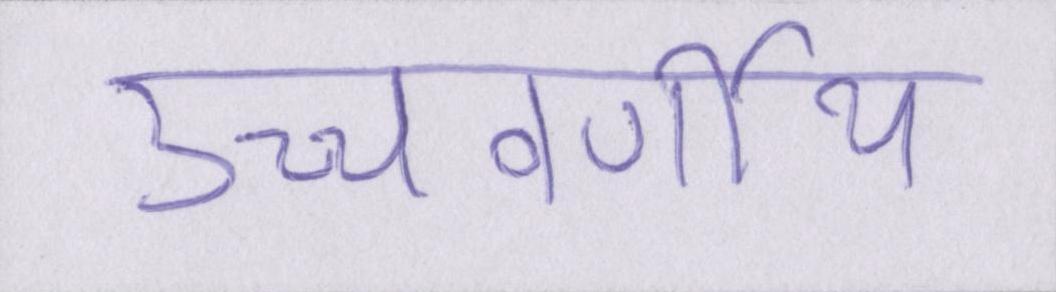 उच्चवर्णीय